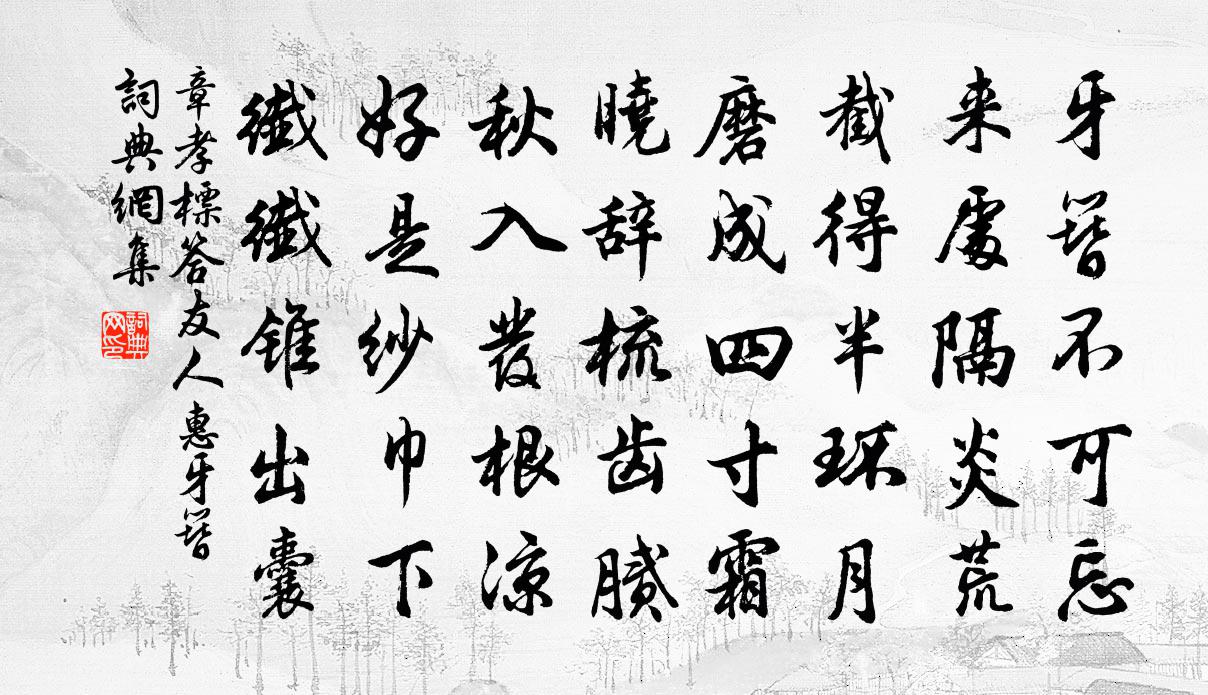 牙簪不可忘
来處隔炎荒
截得半环月
磨成四寸霜
曉辞梳齿腻
秋入發根凉
好是纱巾下
纖纖锥出囊
章孝標答友人惠牙簪
詞典網集
詞典網印